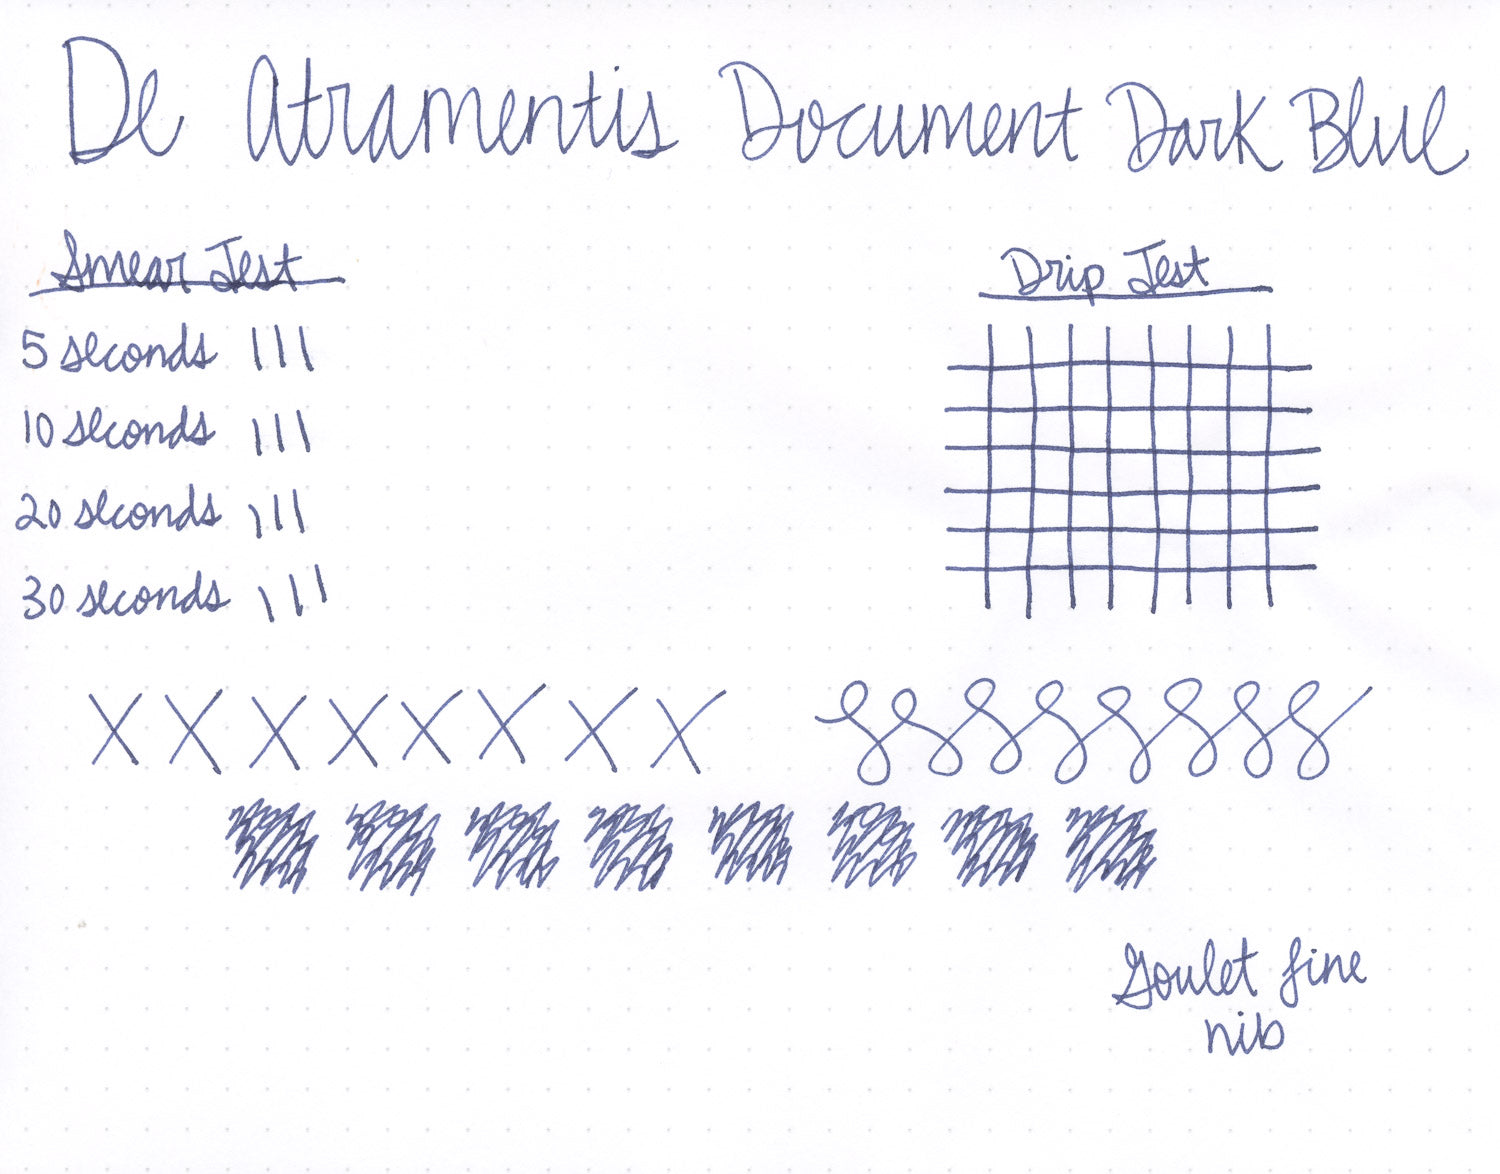 De Atramentis Document Dark Blue
Smear Test
Drip Test
5 seconds
10 seconds
20 seconds
30 seconds
Goulet fine
nib